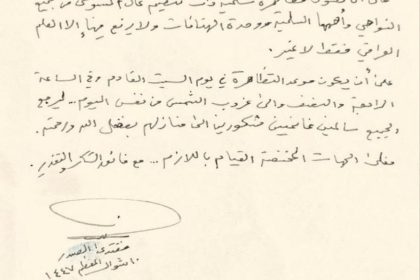 النواحي وأهمها السلمية ووحدة الهتافات ولا يرفع فيها إلا العلم
العراقي فقط لا غير.
على أن يكون موعد التظاهرة في يوم السبت القادم وفي الساعة
الرابعة والنصف والى غروب الشمس من نفس اليوم.. ليرجع
الجميع سالمين غانمين مشكورين الى منازلهم بفضل الله ورحمته.
فعلى الجهات المختصة القيام باللازم... مع فائق الشكر والتقدير.
مقتدى الصدر
١٠ شوال المعظم ١٤٤٧